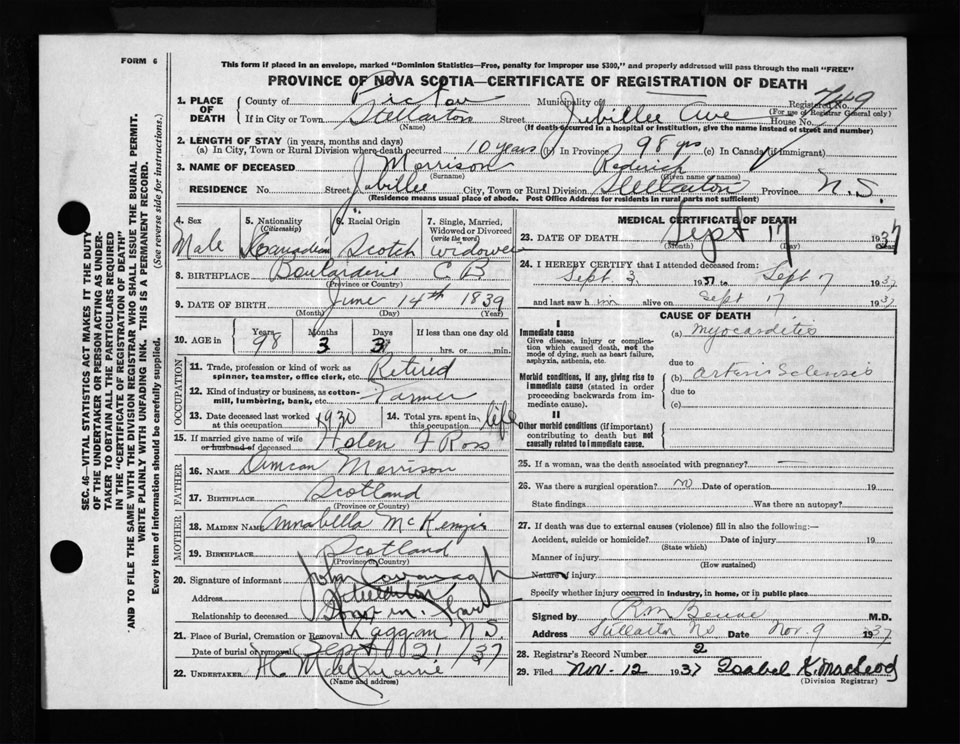 FORM 6
This form if placed in an envelope, marked "Dominion Statistics—Free, penalty for improper use $300," and properly addressed will pass through the mail "FREE"
PROVINCE OF NOVA SCOTIA—CERTIFICATE OF REGISTRATION OF DEATH
SEC. 46—VITAL STATISTICS ACT MAKES IT THE DUTY
OF THE UNDERTAKER OR PERSON ACTING AS UNDER-
TAKER TO OBTAIN ALL THE PARTICULARS REQUIRED
IN THE "CERTIFICATE OF REGISTRATION OF DEATH"
AND TO FILE THE SAME WITH THE DIVISION REGISTRAR WHO SHALL ISSUE THE BURIAL PERMIT.
WRITE PLAINLY WITH UNFADING INK. THIS IS A PERMANENT RECORD.
Every item of information should be carefully supplied. (See reverse side for instructions.)
1. PLACE OF DEATH County of Pictou Municipality of Registered No. 749
(For use of Registrar General only)
If in City or Town Stellarton Street Jubillee Ave House No.
(Name) (If death occurred in a hospital or institution, give the name instead of street and number)
2. LENGTH OF STAY (in years, months and days)
(a) In City, Town or Rural Division where death occurred 10 years (b) In Province 98 yrs (c) In Canada (if immigrant)
3. NAME OF DECEASED Morrison Roderick
(Surname) (Given name or names)
RESIDENCE No. Street Jubillee City, Town or Rural Division Stellarton Province N.S.
(Residence means usual place of abode. Post Office Address for residents in rural parts not sufficient)
4. Sex Male
5. Nationality (Citizenship) Canadian
6. Racial Origin Scotch
7. Single, Married, Widowed or Divorced (write the word) Widower
8. BIRTHPLACE Boulardrie C B
(Province or Country)
9. DATE OF BIRTH June 14th 1839
(Month) (Day) (Year)
10. AGE in Years 98 Months 3 Days 3 If less than one day old
hrs. or min.
OCCUPATION
11. Trade, profession or kind of work as spinner, teamster, office clerk, etc. Retired
12. Kind of industry or business, as cotton-mill, lumbering, bank, etc. Farmer
13. Date deceased last worked at this occupation 1930
14. Total yrs. spent in this occupation life
15. If married give name of wife or husband of deceased Helen F Ross
FATHER
16. NAME Duncan Morrison
17. BIRTHPLACE Scotland
(Province or Country)
MOTHER
18. MAIDEN NAME Annabella McKenzie
19. BIRTHPLACE Scotland
(Province or Country)
20. Signature of informant John Cavanagh
Address Stellarton
Relationship to deceased
21. Place of Burial, Cremation or Removal Laggan N S
Date of burial or removal Sept 21/37
22. UNDERTAKER H. MacQuarrie
(Name and address)
MEDICAL CERTIFICATE OF DEATH
23. DATE OF DEATH Sept 17 1937
(Month) (Day) (Year)
24. I HEREBY CERTIFY that I attended deceased from:
Sept 3. 1937 to Sept 17 1937
and last saw him alive on Sept 17 1937
CAUSE OF DEATH
I
Immediate cause
Give disease, injury or complication which caused death, not the mode of dying, such as heart failure, asphyxia, asthenia, etc.
(a) Myocarditis
due to
Morbid conditions, if any, giving rise to immediate cause (stated in order proceeding backwards from immediate cause).
(b)
due to
(c)
II
Other morbid conditions (if important) contributing to death but not causally related to immediate cause.
25. If a woman, was the death associated with pregnancy? —
26. Was there a surgical operation? no Date of operation 19
State findings Was there an autopsy?
27. If death was due to external causes (violence) fill in also the following:—
Accident, suicide or homicide? Date of injury 19
(State which)
Manner of injury
(How sustained)
Nature of injury
Specify whether injury occurred in industry, in home, or in public place
Signed by M.D.
Address Stellarton NS Date Nov. 9 1937
28. Registrar's Record Number 2
29. Filed Nov. 12 1937 Isabel K. MacLeod
(Division Registrar)